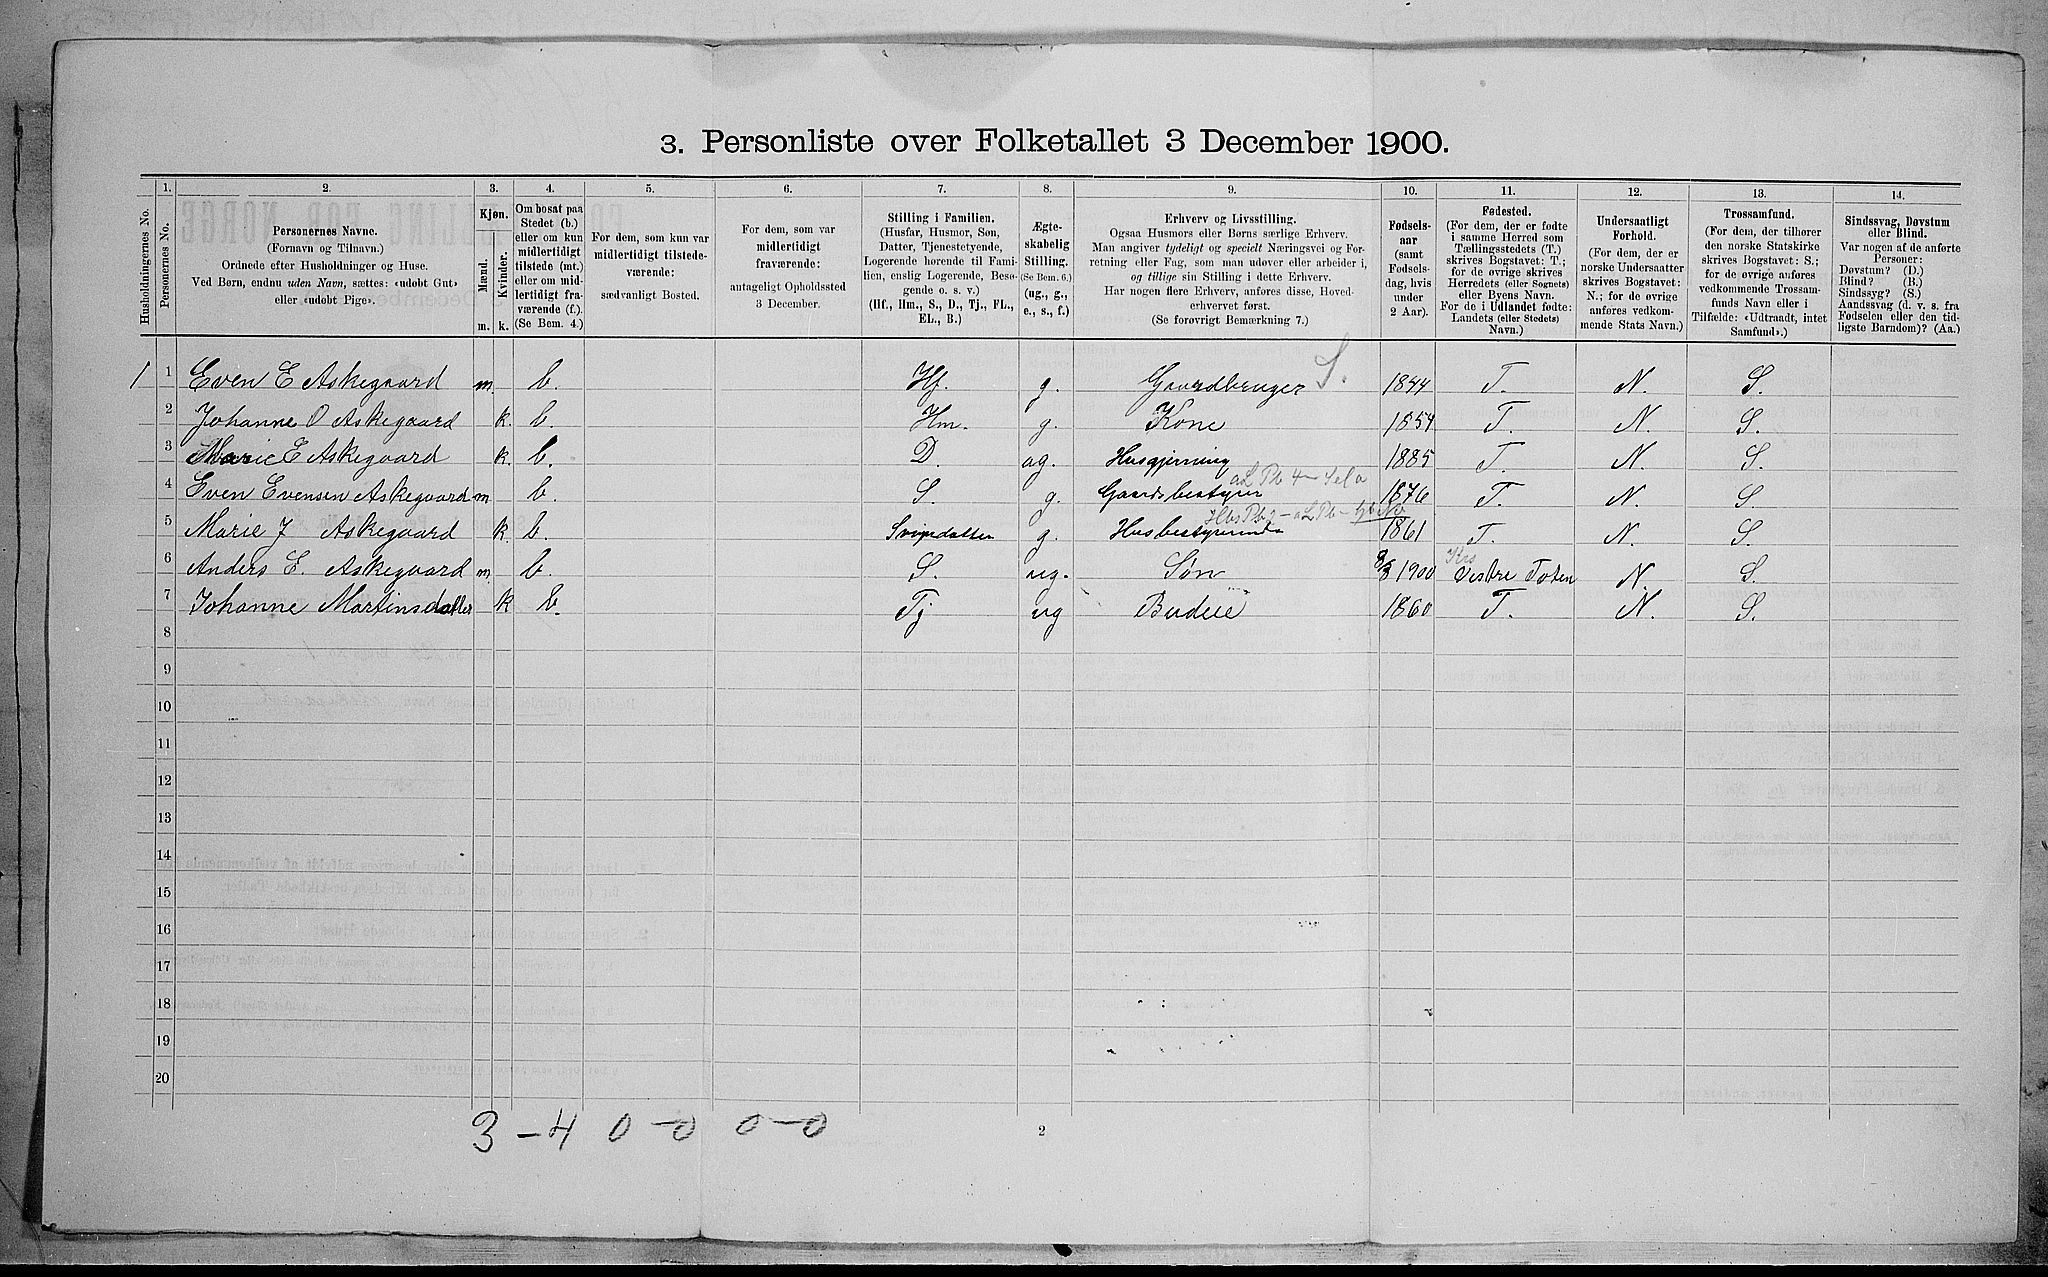 3. Personliste over Folketallet 3 December 1900.
Husholdningernes No.
1. Personernes No.
2. Personernes Navne.
(Fornavn og Tilnavn.)
Ordnede efter Husholdninger og Huse.
Ved Børn, endnu uden Navn, sættes: «udobt Gut»
eller «udobt Pige».
3. Kjøn.
Mænd. Kvinder.
m. k.
4. Om bosat paa
Stedet (b.)
eller om kun
midlertidigt
tilstede (mt.)
eller om mid-
lertidigt fra-
værende (f.).
(Se Bem. 4.)
5. For dem, som kun var
midlertidigt tilstede-
værende:
sædvanligt Bosted.
6. For dem, som var
midlertidigt
fraværende:
antageligt Opholdssted
3 December.
7. Stilling i Familien.
(Husfar, Husmor, Søn,
Datter, Tjenestetyende,
Logerende hørende til Fami-
lien, enslig Logerende, Besø-
gende o. s. v.)
(Hf., Hm., S., D., Tj., FL.,
EL., B.)
8. Ægte-
skabelig
Stilling.
(Se Bem. 6.)
(ug., g.,
e., s., f.)
9. Erhverv og Livsstilling.
Ogsaa Husmors eller Børns særlige Erhverv.
Man angiver tydeligt og specielt Næringsvei og For-
retning eller Fag, som man udover eller arbeider i,
og tillige sin Stilling i dette Erhverv.
Har nogen flere Erhverv, anføres disse, Hoved-
erhvervet først.
(Se forøvrigt Bemærkning 7.)
10. Fødsels-
aar
(samt
Fødsels-
dag, hvis
under
2 Aar).
11. Fødested.
(For dem, der er fødte
i samme Herred som
Tællingsstedets (T.)
skrives Bogstavet: T.;
for de øvrige skrives
Herredets (eller Sognets)
eller Byens Navn.
For de i Udlandet fødte:
Landets (eller Stedets)
Navn.)
12. Undersaatligt
Forhold.
(For dem, der er
norske Undersaatter
skrives Bogstavet:
N.; for de øvrige
anføres vedkom-
mende Stats Navn.)
13. Trossamfund.
(For dem, der tilhører
den norske Statskirke
skrives Bogstavet: S.;
for de øvrige anføres
vedkommende Trossam-
funds Navn eller i
Tilfælde: «Udtraadt, intet
Samfund».)
14. Sindssvag, Døvstum
eller Blind.
Var nogen af de anførte
Personer:
Døvstum? (D.)
Blind? (B.)
Sindssyg? (S.)
Aandssvag (d. v. s. fra
Fødselen eller den tid-
ligste Barndom)? (Aa.)
1 1 Even E Askegaard m. b. Hf. g. Gaardbruger S. 1844 T. N. S.
2 Johanne O Askegaard k. b. Hm. g. Kone 1854 T. N. S.
3 Marie E Askegaard k. b. D. ug. Husgjerning 1885 T. N. S.
4 Even Evensen Askegaard m b. S. g. Gaardsbestyrer 1876 T. N. S.
5 Marie J Askegaard k. b. Svigedatter g. Husbestyrerinde 1861 T. N. S.
6 Anders E. Askegaard m. b. S. ug. Søn 8/8 1900 Vestre Toten N. S.
7 Johanne Martinsdatter k b. Tj ug Budeie 1860 T. N. S.
8
9
10
11
12
13
14
15
16
17
18
19
20
3 - 4 0 - 0 0 - 0
2